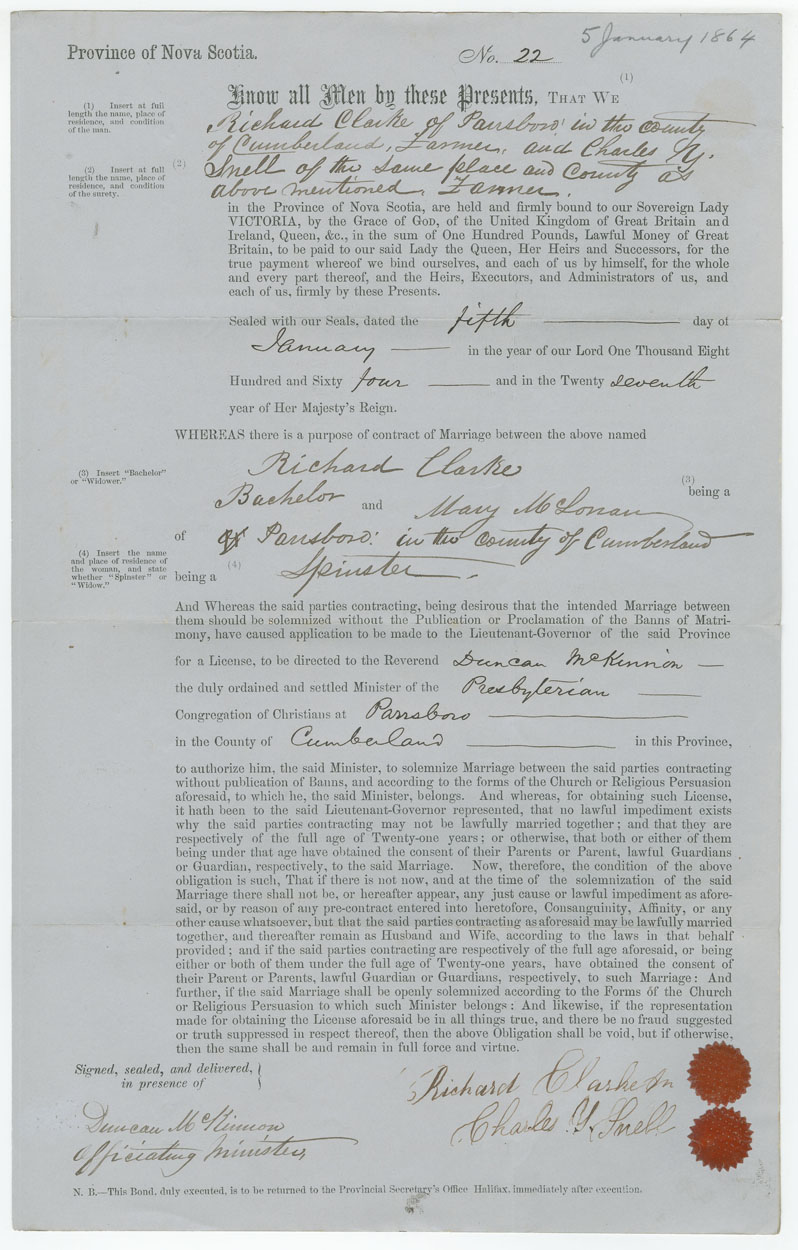 5 January 1864
Province of Nova Scotia.
No. 22
(1)
Know all Men by these Presents, THAT WE
(1) Insert at full
length the name, place of
residence, and condition
of the man.
Richard Clarke of Parrsboro' in the county
of Cumberland, Farmer, and Charles Y.
(2) Insert at full
length the name, place of
residence, and condition
of the surety.
(2)
Snell of the same place and County as
above mentioned, Farmer.
in the Province of Nova Scotia, are held and firmly bound to our Sovereign Lady
VICTORIA, by the Grace of GOD, of the United Kingdom of Great Britain and
Ireland, Queen, &c., in the sum of One Hundred Pounds, Lawful Money of Great
Britain, to be paid to our said Lady the Queen, Her Heirs and Successors, for the
true payment whereof we bind ourselves, and each of us by himself, for the whole
and every part thereof, and the Heirs, Executors, and Administrators of us, and
each of us, firmly by these Presents.
Sealed with our Seals, dated the fifth day of
January in the year of our Lord One Thousand Eight
Hundred and Sixty four and in the Twenty seventh
year of Her Majesty's Reign.
WHEREAS there is a purpose of contract of Marriage between the above named
Richard Clarke
(3) Insert "Bachelor"
or "Widower."
(3)
being a
Bachelor and Mary
of of Parrsboro' in the county of Cumberland
(4) Insert the name
and place of residence of
the woman, and state
whether "Spinster" or
"Widow."
(4)
being a Spinster.
And Whereas the said parties contracting, being desirous that the intended Marriage between
them should be solemnized without the Publication or Proclamation of the Banns of Matri-
mony, have caused application to be made to the Lieutenant-Governor of the said Province
for a License, to be directed to the Reverend Duncan McKinnon
the duly ordained and settled Minister of the Presbyterian
Congregation of Christians at Parrsboro
in the County of Cumberland in this Province,
to authorize him, the said Minister, to solemnize Marriage between the said parties contracting
without publication of Banns, and according to the forms of the Church or Religious Persuasion
aforesaid, to which he, the said Minister, belongs. And whereas, for obtaining such License,
it hath been to the said Lieutenant-Governor represented, that no lawful impediment exists
why the said parties contracting may not be lawfully married together; and that they are
respectively of the full age of Twenty-one years; or otherwise, that both or either of them
being under that age have obtained the consent of their Parents or Parent, lawful Guardians
or Guardian, respectively, to the said Marriage. Now, therefore, the condition of the above
obligation is such, That if there is not now, and at the time of the solemnization of the said
Marriage there shall not be, or hereafter appear, any just cause or lawful impediment as afore-
said, or by reason of any pre-contract entered into heretofore, Consanguinity, Affinity, or any
other cause whatsoever, but that the said parties contracting as aforesaid may be lawfully married
together, and thereafter remain as Husband and Wife, according to the laws in that behalf
provided; and if the said parties contracting are respectively of the full age aforesaid, or being
either or both of them under the full age of Twenty-one years, have obtained the consent of
their Parent or Parents, lawful Guardian or Guardians, respectively, to such Marriage: And
further, if the said Marriage shall be openly solemnized according to the Forms of the Church
or Religious Persuasion to which such Minister belongs: And likewise, if the representation
made for obtaining the License aforesaid be in all things true, and there be no fraud suggested
or truth suppressed in respect thereof, then the above Obligation shall be void, but if otherwise,
then the same shall be and remain in full force and virtue.
Signed, sealed, and delivered,
in presence of
Richard Clarke
Charles Y. Snell
Duncan McKinnon
Officiating Minister
N. B.—This Bond, duly executed, is to be returned to the Provincial Secretary's Office Halifax, immediately after execution.